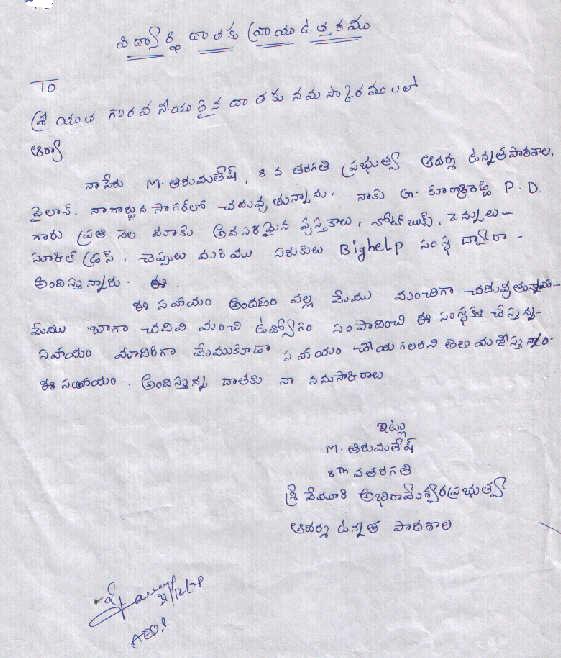 విద్యార్థి దాతకు వ్రాయు ఉత్తరము
TO
శ్రీయుత గౌరవనీయులైన దాతకు నమస్కారములతో
ఆర్యా
నా పేరు M. తిరుమలేష్, 8వ తరగతి ప్రభుత్వ ఆదర్శ ఉన్నత పాఠశాల,
పైలాన్. నాగార్జున సాగర్‌లో చదువుతున్నాను. నాకు P.D.
గారు ప్రతి నెల మాకు అవసరమైన పుస్తకాలు, నోట్ బుక్స్, పెన్నులు-
స్కూల్ డ్రెస్, చెప్పులు మరియు సరుకులు Bighelp సంస్థ ద్వారా-
అందిస్తున్నారు. ఈ.
ఈ సహాయం అందటం వల్ల మేము మంచిగా చదువుతున్నాము-
మేము బాగా చదివి మంచి ఉద్యోగం సంపాదించి ఈ సంస్థకు చేస్తున్న-
సహాయం మాదిరిగా మేముకూడా సహాయం చేయగలరని తెలియచేస్తున్నాం-
ఈ సహాయం. అందిస్తున్న దాతకు నా నమస్కారాలు
ఇట్లు
M. తిరుమలేష్
8th వ తరగతి
శ్రీ అభిరామేశ్వర ప్రభుత్వ
ఆదర్శ ఉన్నత పాఠశాల